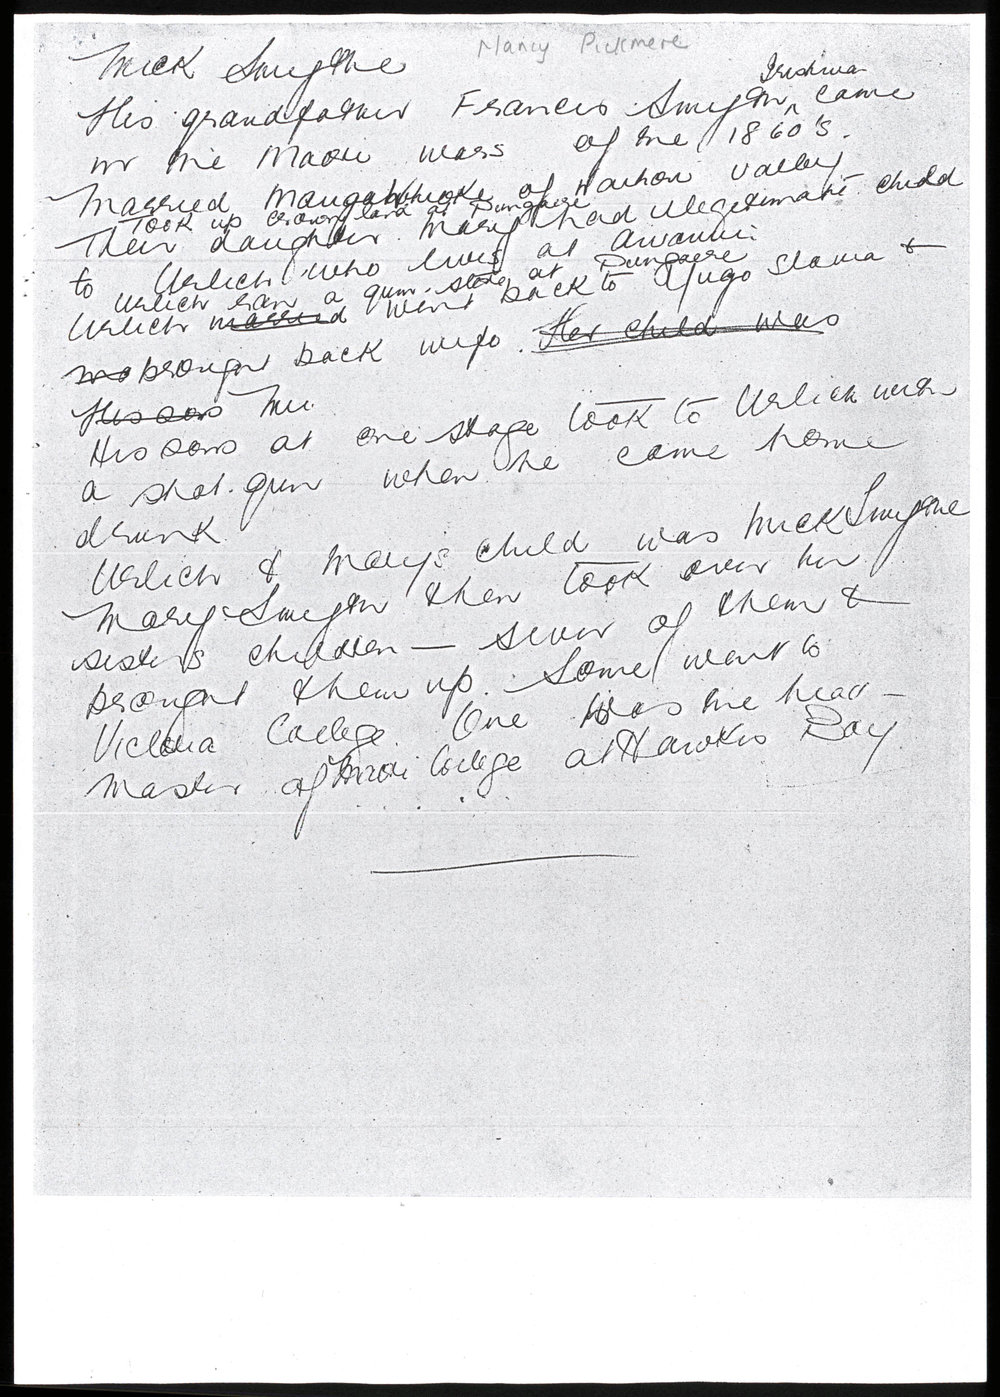 Nancy Pickmere
Mick Smythe
His grandfather Francis Smyth Irishman came
in the Maori wars of the 1860's.
Married of valley
Took up crown land at Pungaere
Their daughter Mary had illegitimate child
to Urlich who lives at Awanui
Urlich ran a gum store at Pungaere
Urlich married went back to Yugo Slavia &
brought back wife. Her child was
His son
His sons at one stage took to Urlich with
a shot-gun when he came home
drunk
Urlich & Mary's child was Mick Smythe
Mary Smyth then took over her
sisters children — seven of them &
brought them up. Some went to
Victoria College One was the head-
master of College at Hawkes Bay